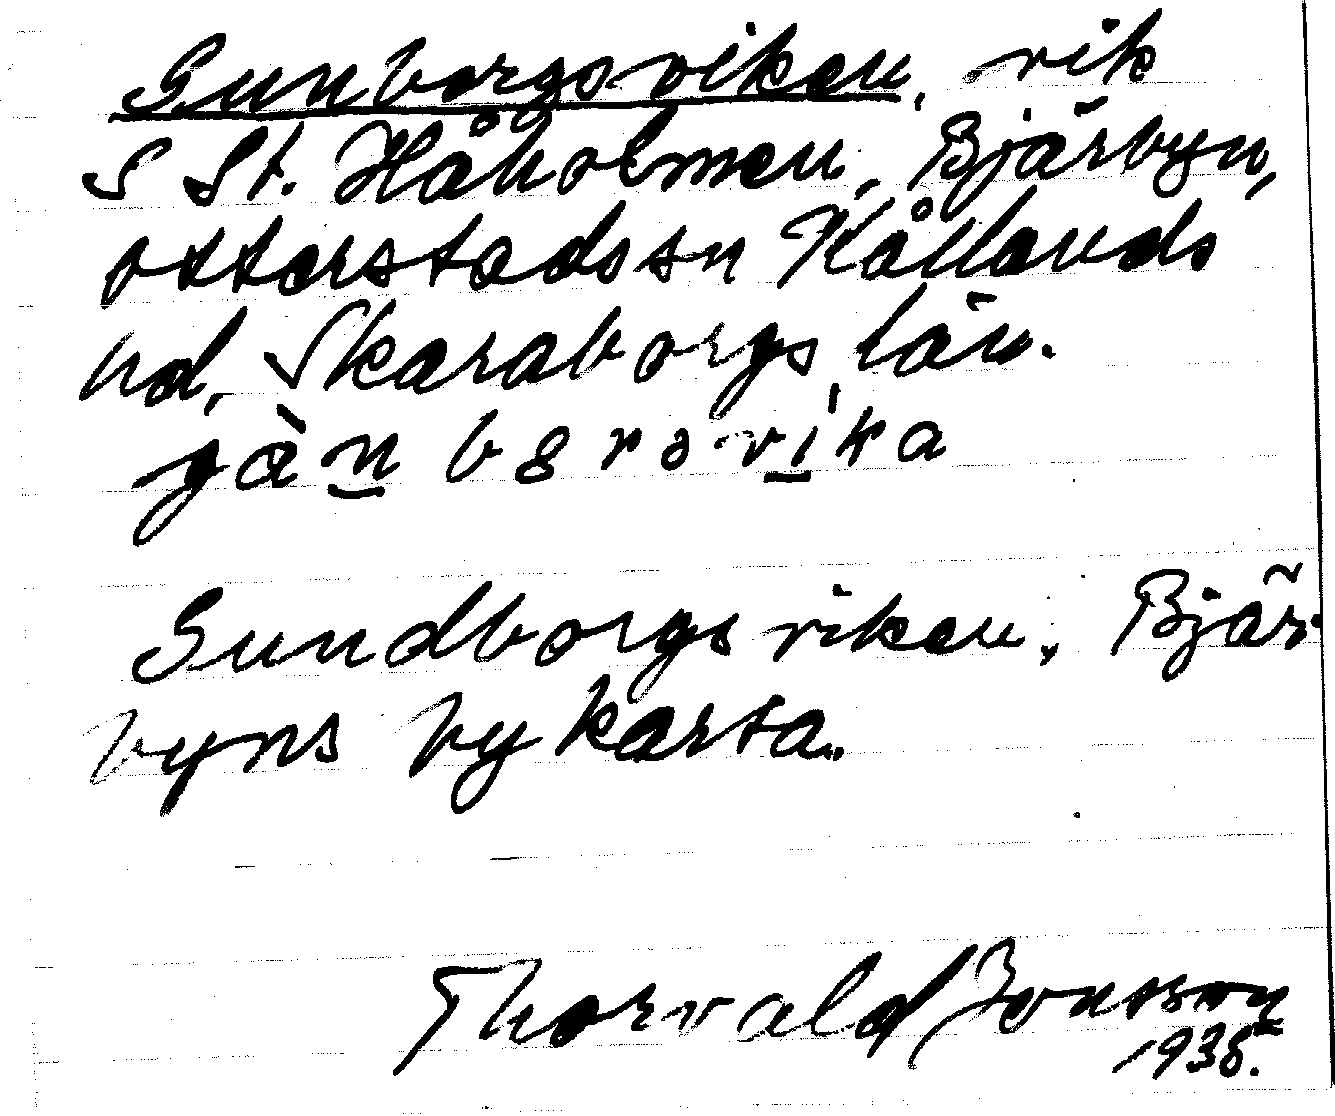 Gunborgsviken, vik
S St. Håholmen, Bjärbyn,
Otterstads sn Kållands
hd, Skaraborgs län.
gàn bɞrsvi̱ka
Gundborgsviken. Bjär-
byns bykarta.
Thorvald Jonsson
1938.